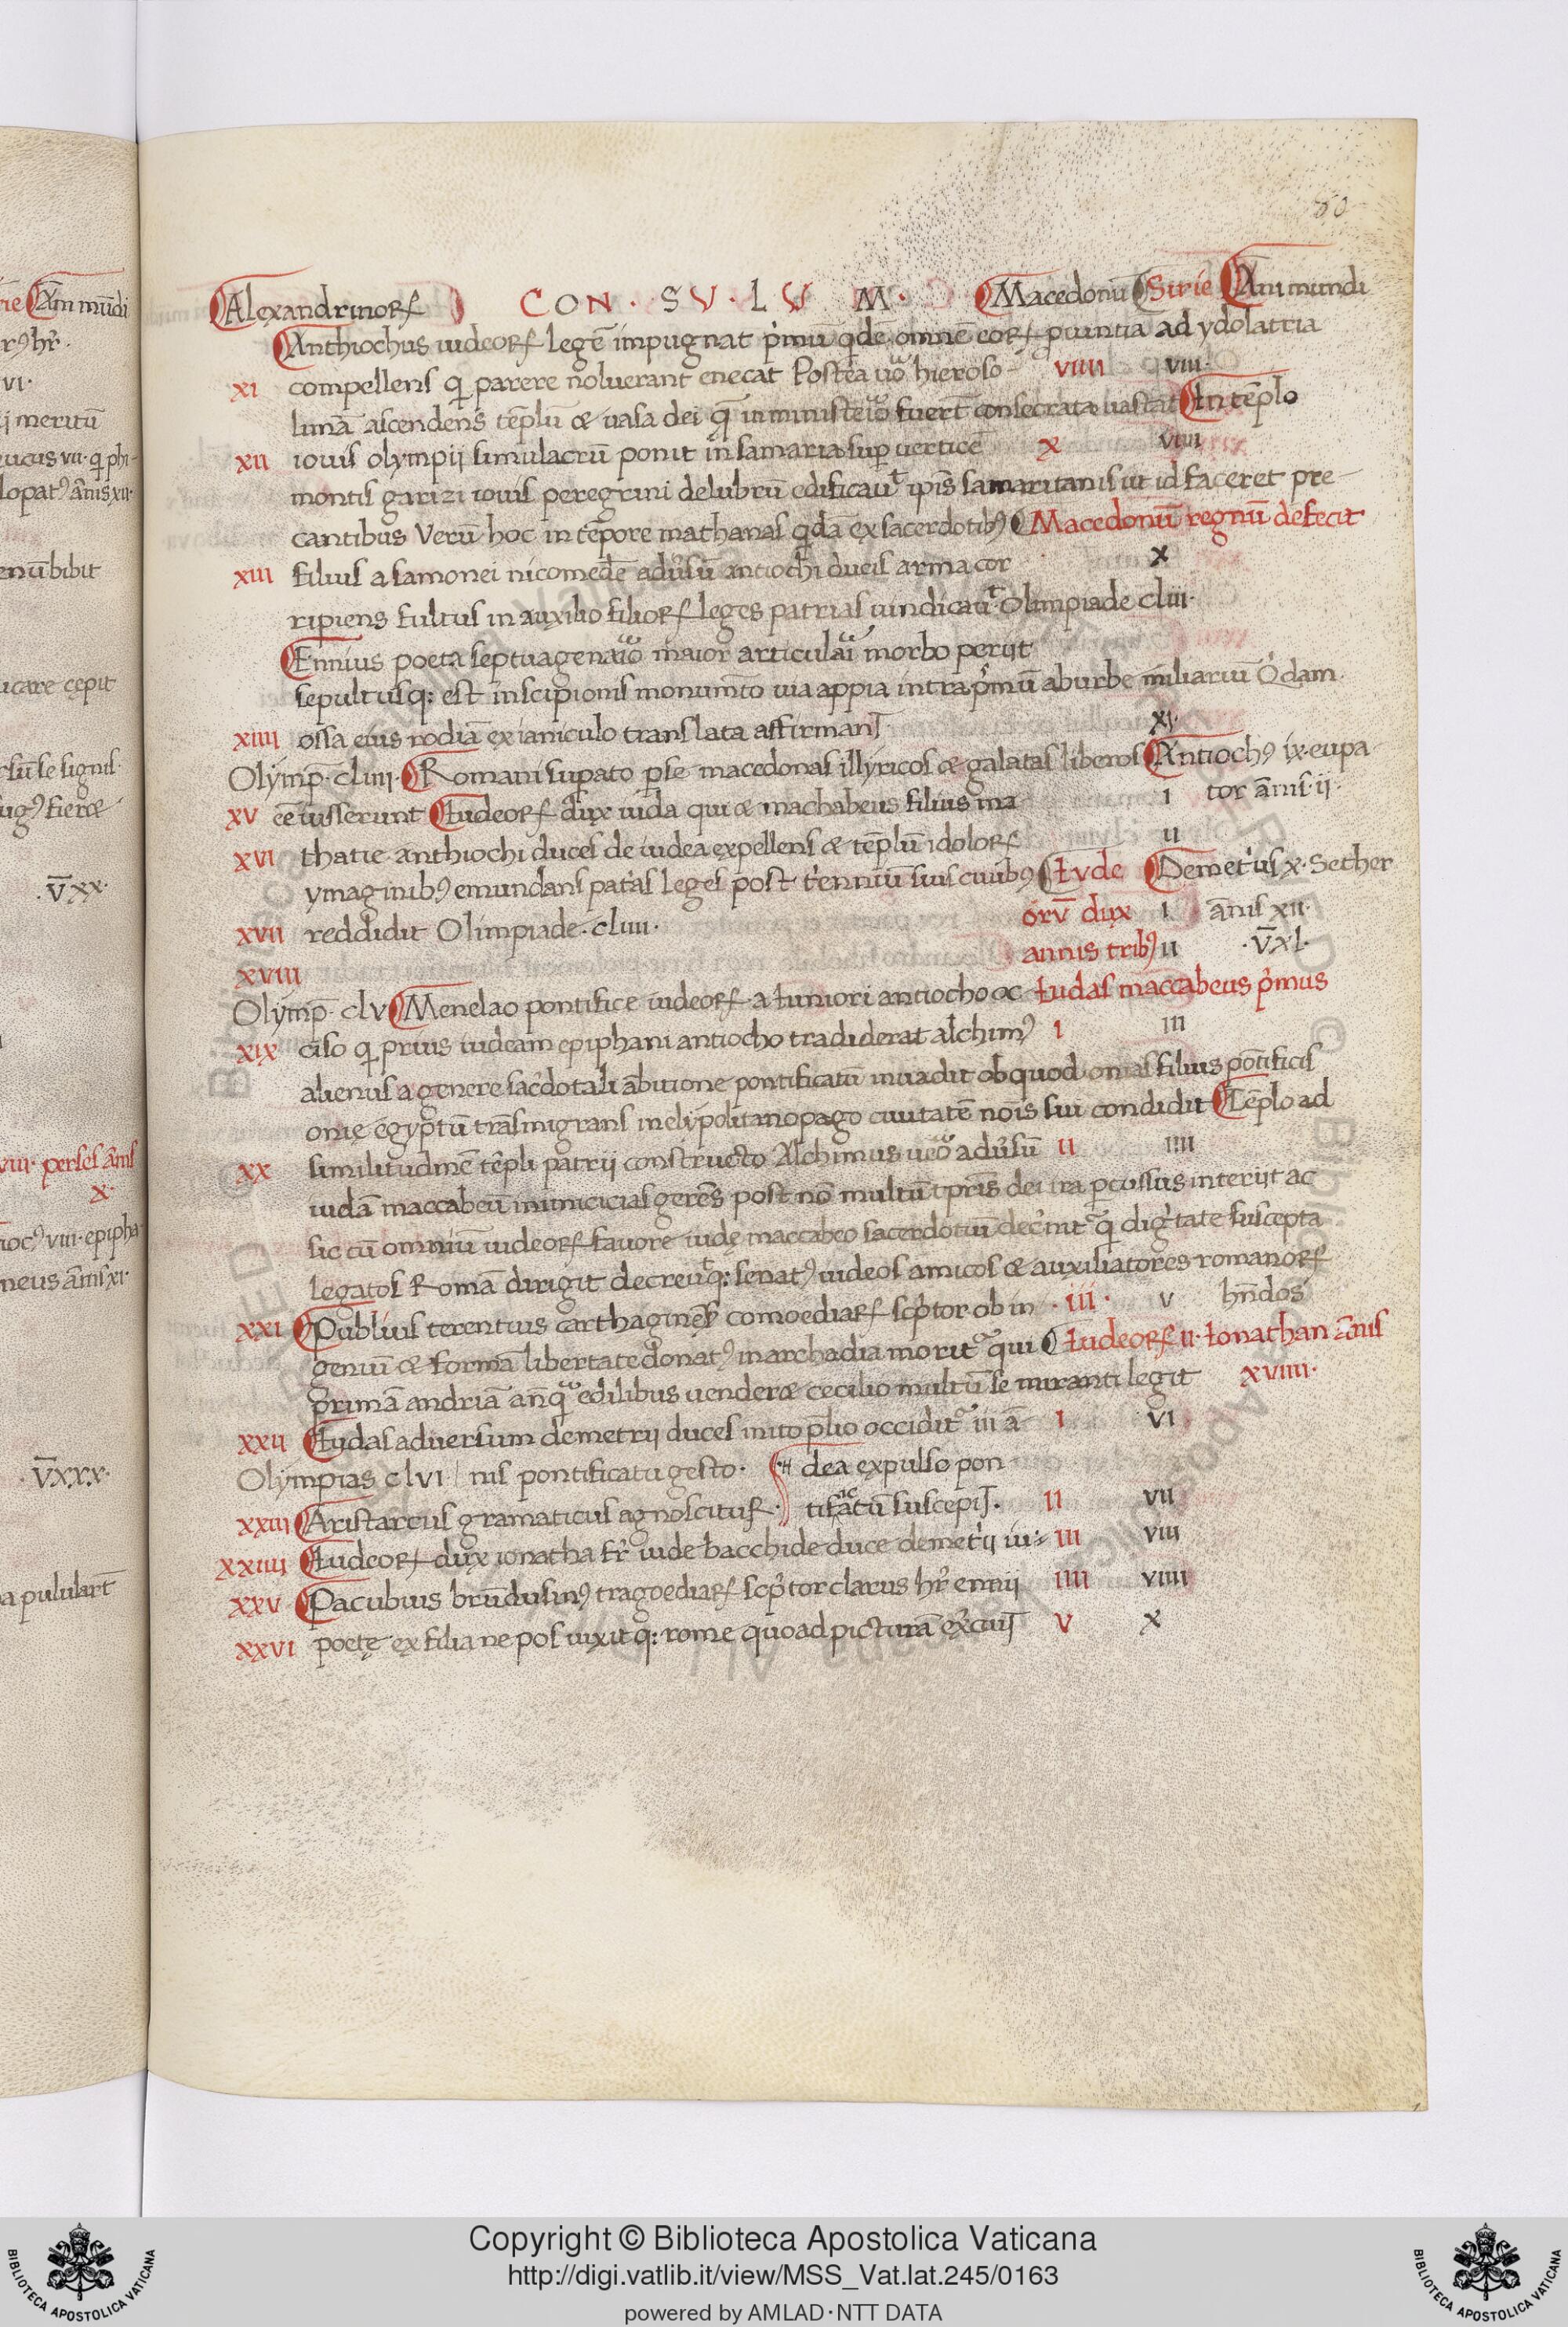 60
Alexandrinoꝝ CON·SV·LV M· Macedonū Sirie Ani mundi
Anthiochus iudeoꝝ legē impugnat p̓mū qͥdē omnē eoꝝ puintia ad ydolatria
xi compellens q̇ parere noluerant enecat Postea uͦo hieroso- viiii viii·
limā ascendens tēplū & uasa dei q̄ in ministeͥo fuerͭ consecrata uastat In tēplo
xii iouis olympii simulacrū ponit in samaria sup uerticē x viiii
montis garizi iouis peregrini delubrū edificauͭ ipis̄ samaritanis ut id faceret pre-
cantibus Verū hoc in tēpore mathanas qͥdā ex sacerdotibꝰ Macedonū regnū defecit
xiii filius a samonei nicomedē adu̓sū antiochi duces arma cor x
ripiens fultus in auxilio filioꝝ leges patrias uindicauͭ· Olimpiade cliii·
Ennius poeta septuagenaͥo maior articulaͥ morbo periit
sepultusq: est in scipionis monumͭo uia appia intra p̓mū ab urbe miliariū Qͥdam
xiiii ossa eius rodiā ex ianiculo translata affirmanͭ xi·
Olymp̄· cliiii· Romani supato pse macedonas illyricos & galatas liberos Antiochꝰ ix·eupa
xv eē iusserunt Iudeoꝝ dux iuda qui & machabeus filius ma- i tor ānis·ii·
xvi thatie· anthiochi duces de iudea expellens & tēplū idoloꝝ ii
ymaginibꝰ emundans pat̓as leges post t̓enniū suis ciuibꝰ Iude Demet̓us x· Sother
xvii reddidit Olimpiade· cliiii· orū dux i ānis xii·
xviii annis tribꝰ ii ·V̄xl·
Olymp̄· clv Menelao pontifice iudeoꝝ· a Iuniori antiocho oc Iudas maccabeus p̓mus
xix ciso q̇ prius iudeam epiphani antiocho tradiderat alchimꝰ i iii
alienus a genere sac̓dotali ābitione pontificatū inuadit ob quod onias filius pōtificis
onię egyptū trāsmigrans in elipolitano pago ciuitatē nōis sui condidit Tēplo ad
xx similitudinē tēpli patrii constructo Alchimus ueͦo adu̓sū ii iiii
iudā maccabeū inimicicias gerēs post nō multū tpris̄ dei ira pcussus interiit ac
sic cū omniū iudeoꝝ fauore iudę maccabeo sacerdotiū dec̓nitͬ q̇ digͥtate suscepta
legatos Romā dirigit decreuͭq: senatꝰ iudeos amicos & auxiliatores romanoꝝ
xxi Publius terentius carthaginēs comoediaꝝ sc̓ptor ob in ·iii· v hn̄dos
geniū & formā libertate donatꝰ in archadia moritͬ qui Iudeoꝝ ii· Ionathan ānis
primā andriā anq̇̄ edilibus uender& cecilio multū se miranti legit xviiii·
xxii Iudas aduersum demetrii duces inito p̄lio occiditͬ iii ā- i vi
Olympias clvi / nis pontificatu gesto· ·H dea expulso pon
xxiii Aristarcus gramaticus agnoscitur· tificatū suscepiͭ· ii vii
xxiiii Iudeoꝝ dux ionatha fr̄ iude bacchide duce demet̓ii iu: iii viii
xxv Pacubius brūdusinꝰ tragoediaꝝ sc̓ptor clarus hr̄ ennii iiii viiii
xxvi poetę ex filia nepos uixitq: rome quoad picturā ex̓cuiͭ v x
rie Ani mūdi
rꝰ hr̄·
vi·
ii meritū
eucus vii· q̇ phi-
lopatꝰ ānis xii·
enū bibit
icare cępit
rsū se signis·
ugꝰ fier&
·V̄xx·
viii· perses ānis
x·
iocꝰ viii·epipha
neus ānis xi·
·V̄xxx·
a pulularͭ
Copyright © Biblioteca Apostolica Vaticana
http://digi.vatlib.it/view/MSS_Vat.lat.245/0163
powered by AMLAD·NTT DATA
BIBLIOTECA APOSTOLICA VATICANA
BIBLIOTECA APOSTOLICA VATICANA